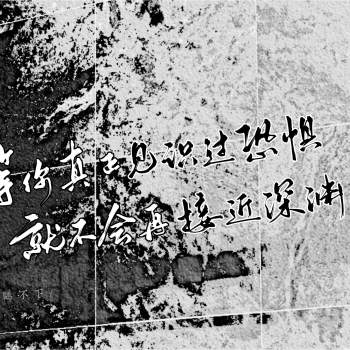 等你真正见识过恐惧
就不会再接近深渊
不下